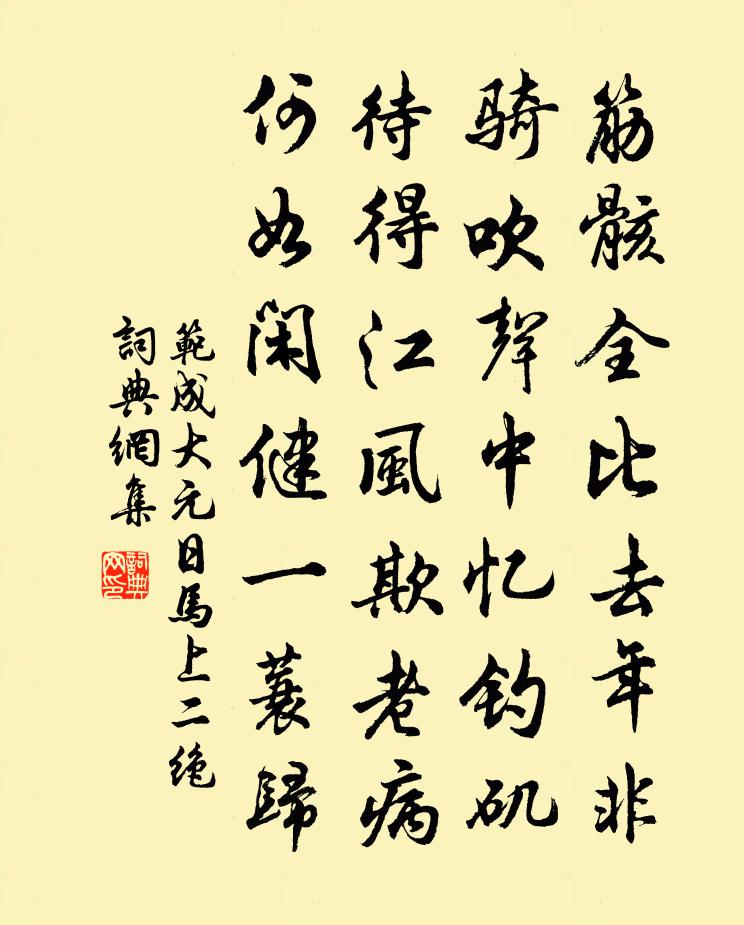 筋骸全比去年非
骑吹聲中忆钓矶
待得江風欺老病
何如闲健一蓑歸
範成大元日馬上二绝
詞典網集
詞典
网印